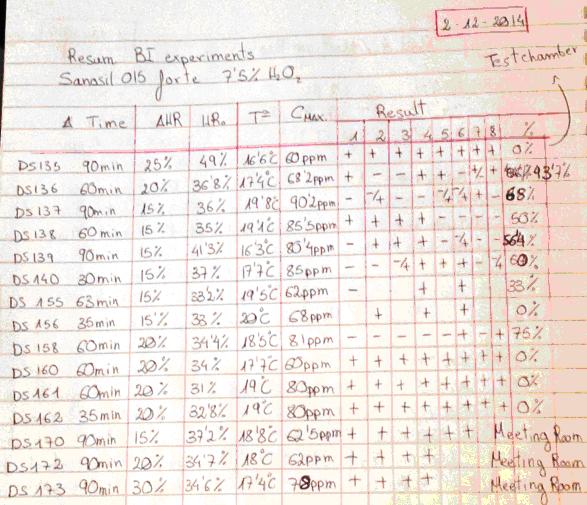 2-12-2014
Resum BI experiments
Testchamber
Sanosil 015 forte 7'5% H₂O₂
Δ Time ΔHR HR₀ Tª CMAX. Result
1 2 3 4 5 6 7 8 %
DS135 90min 25% 49% 16'6°C 60ppm + + + + + + + + 0%
DS136 60min 20% 36'8% 17'4°C 68'2ppm + - - + + - + 93'7%
DS137 90min 15% 36% 19'8°C 90'2ppm - - - + - 68%
DS138 60min 15% 35% 19'1°C 85'5ppm + + + + - - - - 50%
DS139 90min 15% 41'3% 16'3°C 80'4ppm - + + + - - -
DS140 30min 15% 37% 17'7°C 85ppm - - + + + - 60%
DS155 63min 15% 33'2% 19'5°C 62ppm - + + 33%
DS156 35min 15'% 33% 20°C 68ppm + + + 0%
DS158 60min 20% 34'4% 18'5°C 81ppm - - - - - + - + 75%
DS160 60min 20% 34% 17'7°C 60ppm + + + + + + + + 0%
DS161 60min 20% 31% 19°C 80ppm + + + + + + + + 0%
DS162 35min 20% 32'8% 19°C 80ppm + + + + + + + + 0%
DS170 90min 15% 37'2% 18'8°C 62'5ppm + + + + + + Meeting Room
DS172 90min 20% 34'7% 18°C 62ppm + + + + Meeting Room
DS173 90min 30% 34'6% 17'4°C 78ppm + + + + Meeting Room